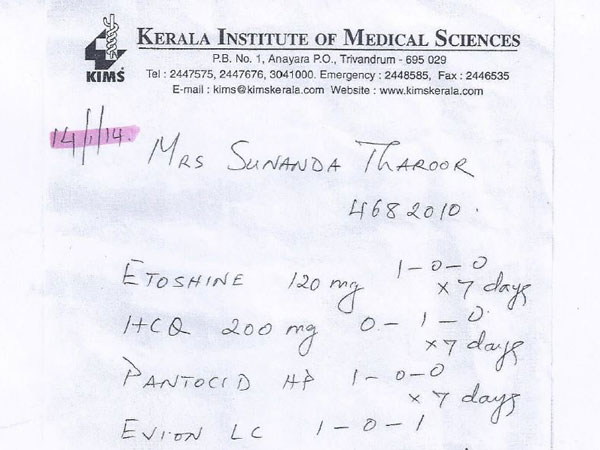 KIMS
KERALA INSTITUTE OF MEDICAL SCIENCES
P.B. No. 1, Anayara P.O., Trivandrum - 695 029
Tel : 2447575, 2447676, 3041000. Emergency : 2448585, Fax : 2446535
E-mail : kims@kimskerala.com Website : www.kimskerala.com
14/1/14.
MRS SUNANDA THAROOR
4682010.
ETOSHINE 120 mg 1-0-0
x 7 days
HCQ 200 mg 0-1-0
x 7 days
PANTOCID HP 1-0-0
x 7 days
EVION LC 1-0-1